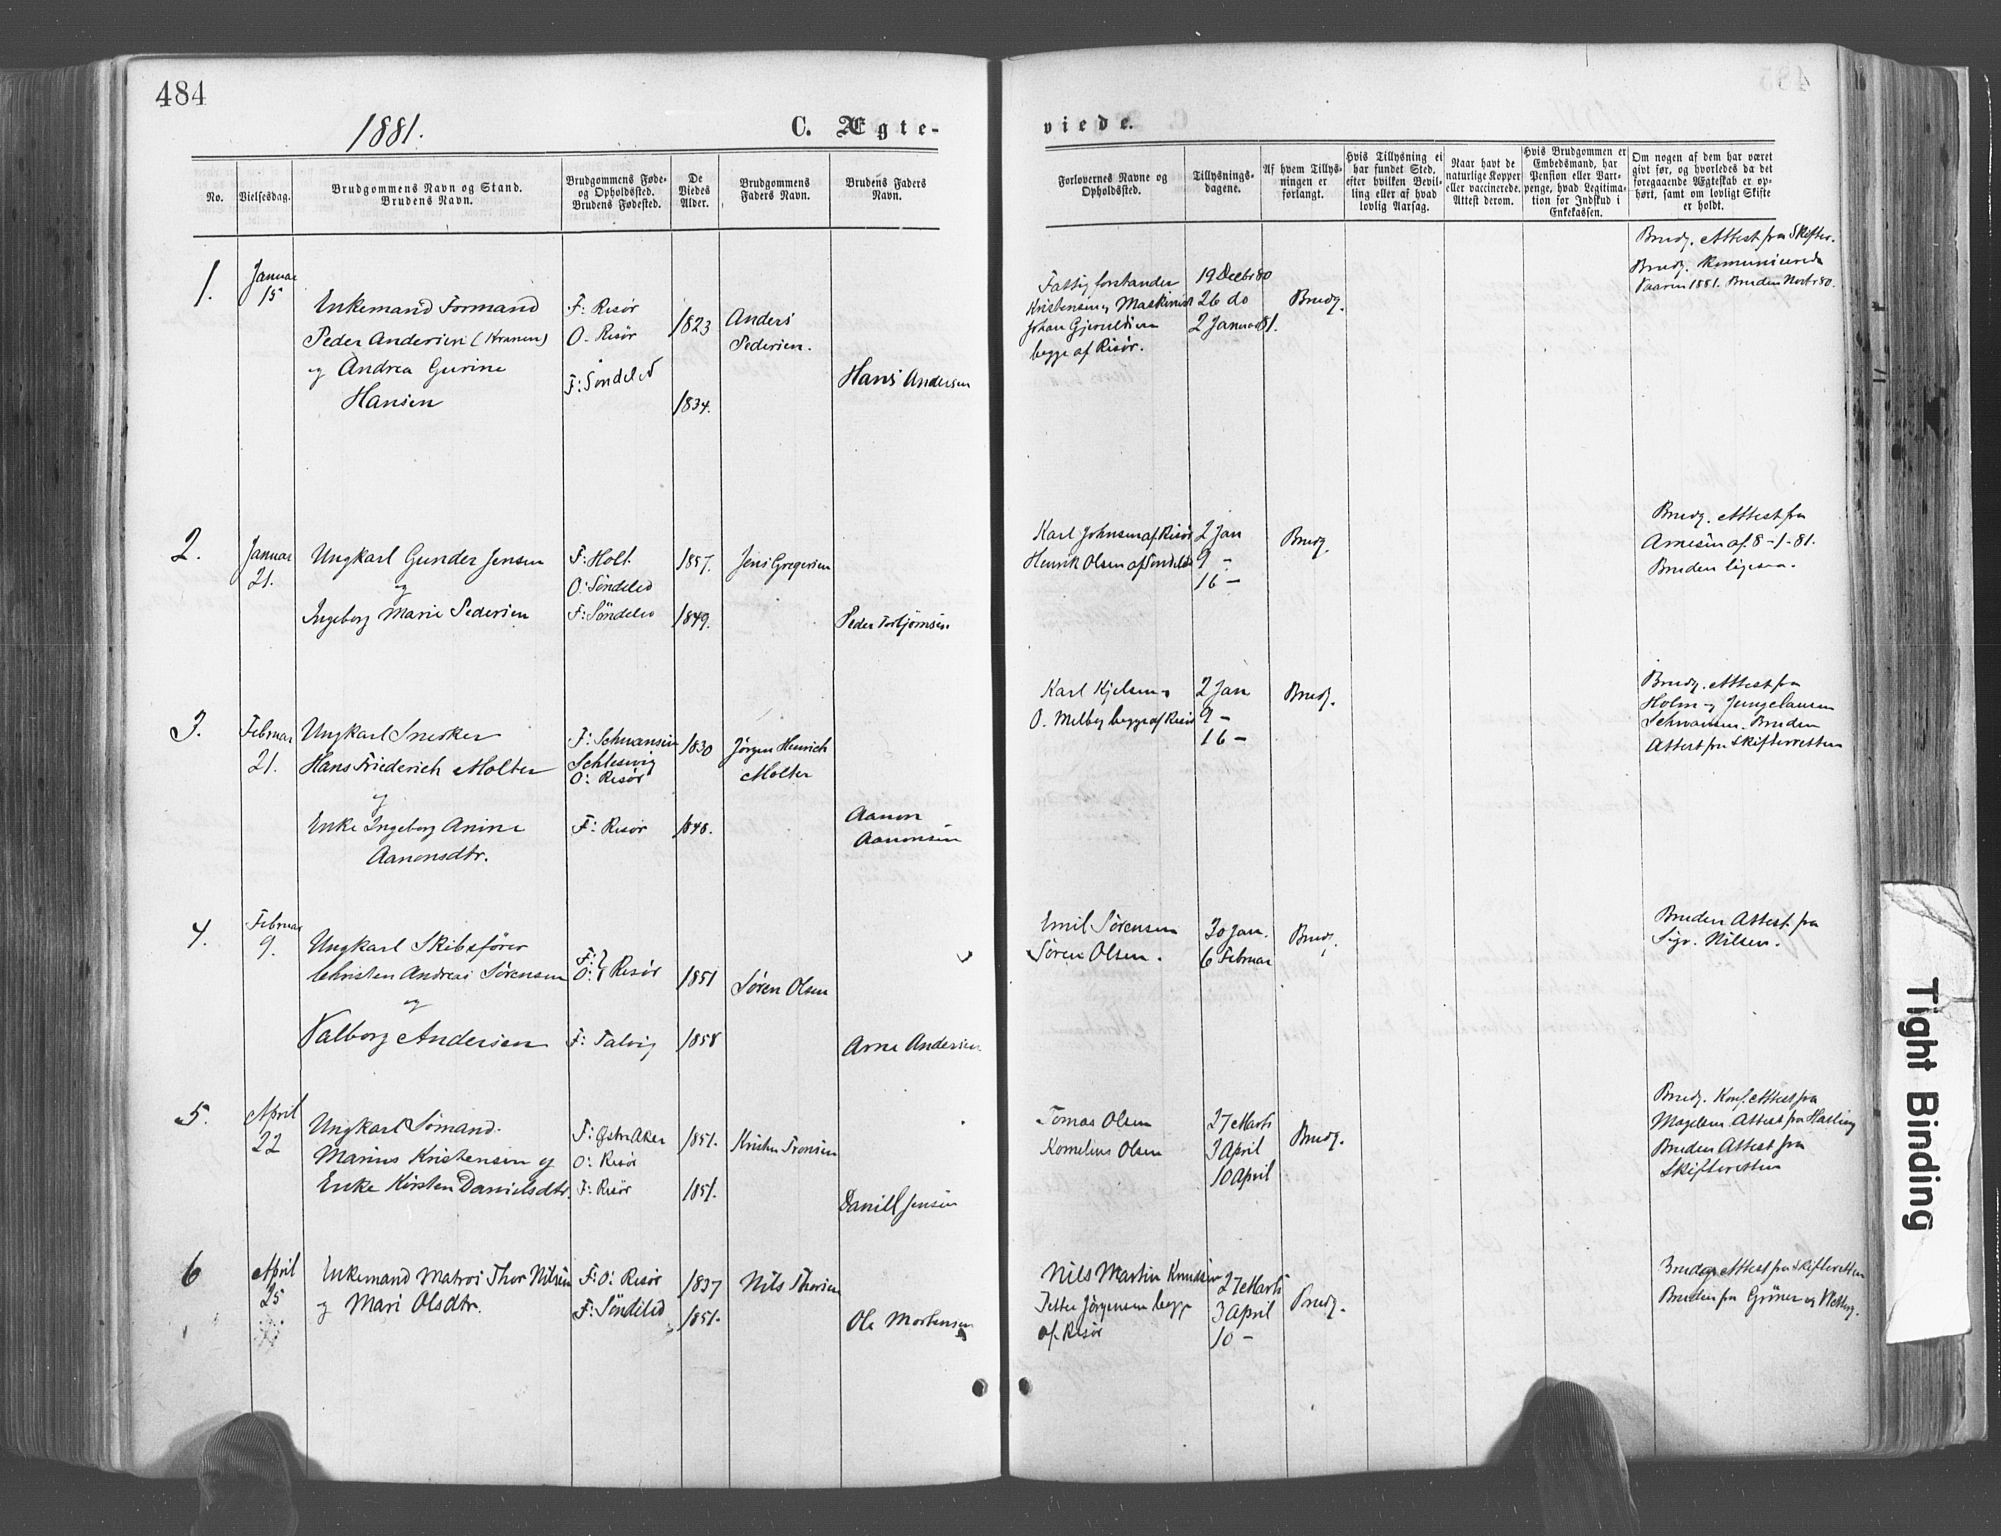 484
1881.
C. Ægte-
viede.
No.
Vielsesdag.
Brudgommens Navn og Stand.
Brudens Navn.
Brudgommens Føde-
og Opholdssted.
Brudens Fødested.
De
Viedes
Alder.
Brudgommens
Faders Navn.
Brudens Faders
Navn.
Forlovernes Navne og
Opholdssted.
Tillysnings-
dagene.
Af hvem Tillys-
ningen er
forlangt.
Hvis Tillysning ei
har fundet Sted,
efter hvilken Bevil-
ling eller af hvad
lovlig Aarsag.
Naar havt de
naturlige Kopper
eller vaccinerede.
Attest derom.
Hvis Brudgommen er
Embedsmand, har
Pension eller Vart-
penge, hvad Legitima-
tion for Indskud i
Enkekassen.
Om nogen af dem har været
givt før, og hvorledes da det
foregaaende Ægteskab er op-
hørt, samt om lovligt Skifte
er holdt.
1.
Januar
15
Enkemand Formand
Peder Andersen (Kranen)
og Andrea Gurine
Hansen
F: Risør
O. Risør
F: Søndeled
1823
1834.
Anders
Pedersen.
Hans Andersen
Fattigforstander
Kristensen og Maskinist
Johan Gjeruldsen
begge af Risør.
19 Decbr 80
26 do
2 Januar 81.
Brudg.
Brudg. Attest fra Skifter.
Brudg. Kommunicerede
Vaaren 1881. Bruden Novbr 80.
2.
Januar
21.
Ungkarl Gunder Jensen
og
Ingeborg Marie Pedersen
F: Holt
O: Søndeled
F: Søndeled
1857.
1849.
Jens Gregersen
Peder Torbjørnsen
Karl Johnsen af Risør
Henrik Olsen af Søndeled
2 Jan
9 -
16 -
Brudg.
Brudg. Attest fra
Arnesen af 8-1-81.
Bruden ligesaa.
3.
Februar
21.
Ungkarl Snedker
Hans Friederich Molter
og
Enke Ingeborg Anine
Aanonsdtr.
F: Schwansen
Schlesvig
O: Risør
F: Risør
1830
1848.
Jørgen Henrich
Molter
Aanon
Aanonsen
Karl Kjelsen og
O. Melby begge af Risør
2 Jan
9 -
16 -
Brudg.
Brudg. Attest fra
Holm og Jungclausen
Schwansen. Bruden
Attest fra Skifteretten
4.
Februar
9.
Ungkarl Skibsfører
Christen Andreas Sørensen
og
Valborg Andersen
F: }
O: } Risør
F: Talvig
1851
1858
Søren Olsen
Arne Andersen.
Emil Sørensen
Søren Olsen.
30 Jan.
6 Februar
Brudg.
Bruden Attest fra
Sigv. Nilsen.
5.
April
22
Ungkarl Sømand.
Marius Kristensen og
Enke Kirsten Danielsdtr.
F: Østre Aker
O: Risør
F: Risør
1851.
1851.
Kristen Tronsen
Daniel Jensen
Tomas Olsen
Kornelius Olsen
27 Marts
3 April
10 April
Brudg.
Brudg. Konf. Attest fra
Mogelsen Attest fra Halling
Bruden Attest fra
Skifteretten
6
April
25
Enkemand Matros Thor Nilsen
og Mari Olsdtr.
F: O: Risør
F: Søndeled
1837
1851.
Nils Thorsen
Ole Mortensen
Nils Martin Knudsen
Petter Jørgensen begge
af Risør
27 Marts
3 April
10 -
Brudg.
Brudg. Attest fra Skifteretten
Bruden fra Grüner og
Tight Binding